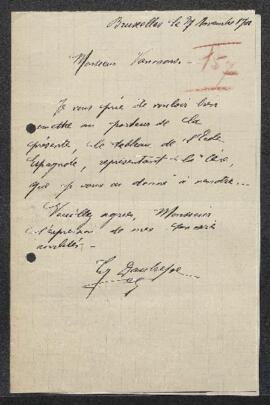 Bruxelles le 29 Novembre
Monsieur
157
Je vous prie de vouloir bien
remettre au porteur de la
présente, le tableau de l'Ecole
Espagnole, représentant la
que je vous ai donné à vendre...
Veuillez agréer, Monsieur
l'expression de mes